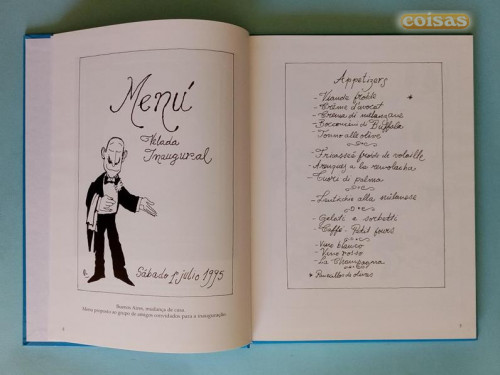 coisas
Menú
Velada
Inaugural
Sábado 1º julio 1995
Buenos Aires, mudança de casa.
Menu proposto ao grupo de amigos convidados para a inauguração.
Appetizers
- Viande froide
- Crème d'avocat
- Crema di melanzane
- Bocconcini di Buffala
- Tonno alle olive
- Fricassé froide de volaille
- Arenques a la
- Cuori di palma
- Lenticchie alla milanese
- Gelati e sorbetti
- Caffé - Petit fours
- Vino bianco
- Vino rosso
- La Champagna